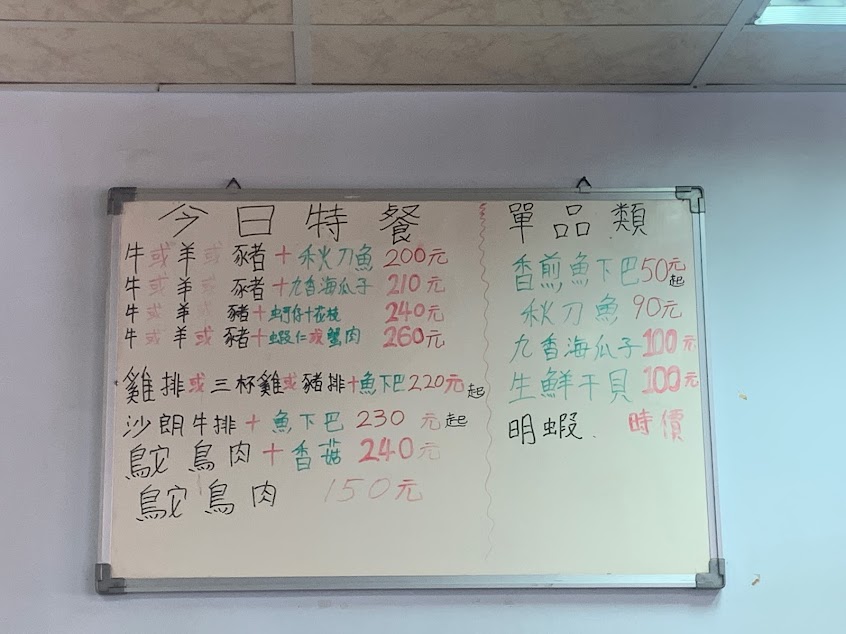 今日特餐
牛或羊或豬+秋刀魚 200元
牛或羊或豬+九香海瓜子 210元
牛或羊或豬+蚵仔+花枝 240元
牛或羊或豬+蝦仁或蟹肉 260元
雞排或三杯雞或豬排+魚下巴220元起
沙朗牛排+魚下巴 230元起
鴕鳥肉+香菇 240元
鴕鳥肉 150元
單品類
香煎魚下巴50元起
秋刀魚 90元
九香海瓜子100元
生鮮干貝 100元
明蝦 時價